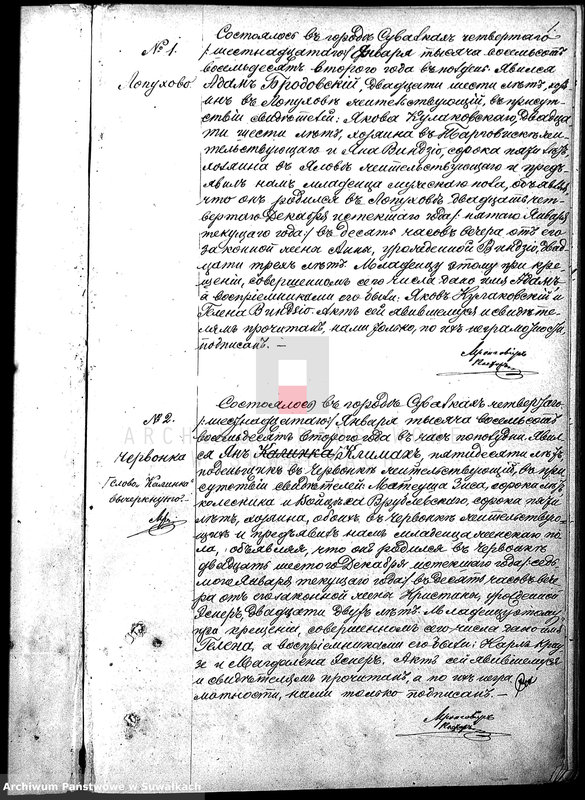 № 1.
Лопухово
Состоялось въ городѣ Сувалкахъ четвертаго
/шестнадцатаго/ Января тысяча восемьсотъ
восемьдесятъ второго года въ полдень. Явился
Адамъ Бродовскій, двадцати шести лѣтъ,
въ Лопуховѣ жительствующій, въ присут-
ствіи свидѣтелей: Якова Кулаковскаго, двадца-
ти шести лѣтъ, хозяина въ жи-
тельствующаго и Яна Виндзіо, сорока пяти лѣтъ,
хозяина въ Яловѣ жительствующаго и предъ-
явилъ намъ младенца мужескаго пола, объявляя,
что онъ родился въ Лопуховѣ двадцать чет-
вертаго Декабря истекшаго года /пятаго Января
текущаго года/ въ десять часовъ вечера отъ его
законной жены Анны, урожденной двад-
цати трехъ лѣтъ. Младенцу этому при кре-
щеніи, совершенномъ сего числа дано имя Адамъ,
а воспріемниками его были: Яковъ Кулаковскій и
Гелена Виндзіо. Актъ сей явившемуся и свидѣте-
лямъ прочитанъ, нами только, по ихъ неграмотности,
подписанъ. —
№ 2.
Червонка
Слово Калинка
вычеркнуто
Состоялось въ городѣ Сувалкахъ четвертаго
/шестнадцатаго/ Января тысяча восемьсотъ
восемьдесятъ второго года въ часъ пополудни. Явил-
ся Янъ Калинка Климахъ, пятидесяти лѣтъ
поденщикъ въ Червонкѣ жительствующій, въ при-
сутствіи свидѣтелей Матеуша сорока лѣтъ
колесника и Войцѣха Врублевскаго, сорока пяти
лѣтъ, хозяина, обоихъ въ Червонкѣ жительствую-
щихъ и предъявилъ намъ младенца женскаго по-
ла, объявляя, что онъ родился въ Червонкѣ
двадцать шестого Декабря истекшаго года /седь-
мого Января текущаго года/ въ десять часовъ вече-
ра отъ его законной жены Кристины, урожденной
двадцати двухъ лѣтъ. Младенцу этому
при крещеніи, совершенномъ сего числа дано имя
Гелена, а воспріемниками его были: Карль Крау-
зе и Магдалена Актъ сей явившемуся
и свидѣтелямъ прочитанъ, а по ихъ негра
мотности, нами только подписанъ. —
Archiwum Państwowe w Suwałkach